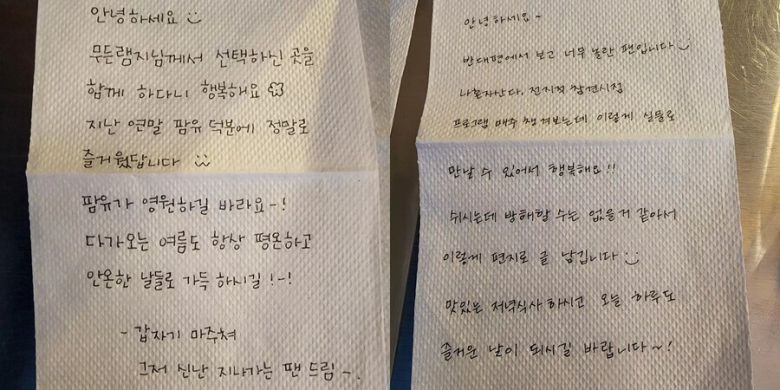 안녕하세요 ⌣̈
무든램지님께서 선택하신 곳을
함께 하다니 행복해요
지난 연말 팜유 덕분에 정말로
즐거웠답니다 ⌣̈
팜유가 영원하길 바라요-!
다가오는 여름도 항상 평온하고
안온한 날들로 가득 하시길 !-!
- 갑자기 마주쳐
그저 신난 지나가는 팬 드림 -.
안녕하세요~
반대편에서 보고 너무 놀란 팬입니다 :)
나혼자산다, 전지적 참견시점
프로그램 매주 챙겨보는데 이렇게 실물로
만날 수 있어서 행복해요!!
쉬시는데 방해할 수는 없을거 같아서
이렇게 편지로 글 남깁니다 :)
맛있는 저녁식사 하시고 오늘 하루도
즐거운 날이 되시길 바랍니다~!